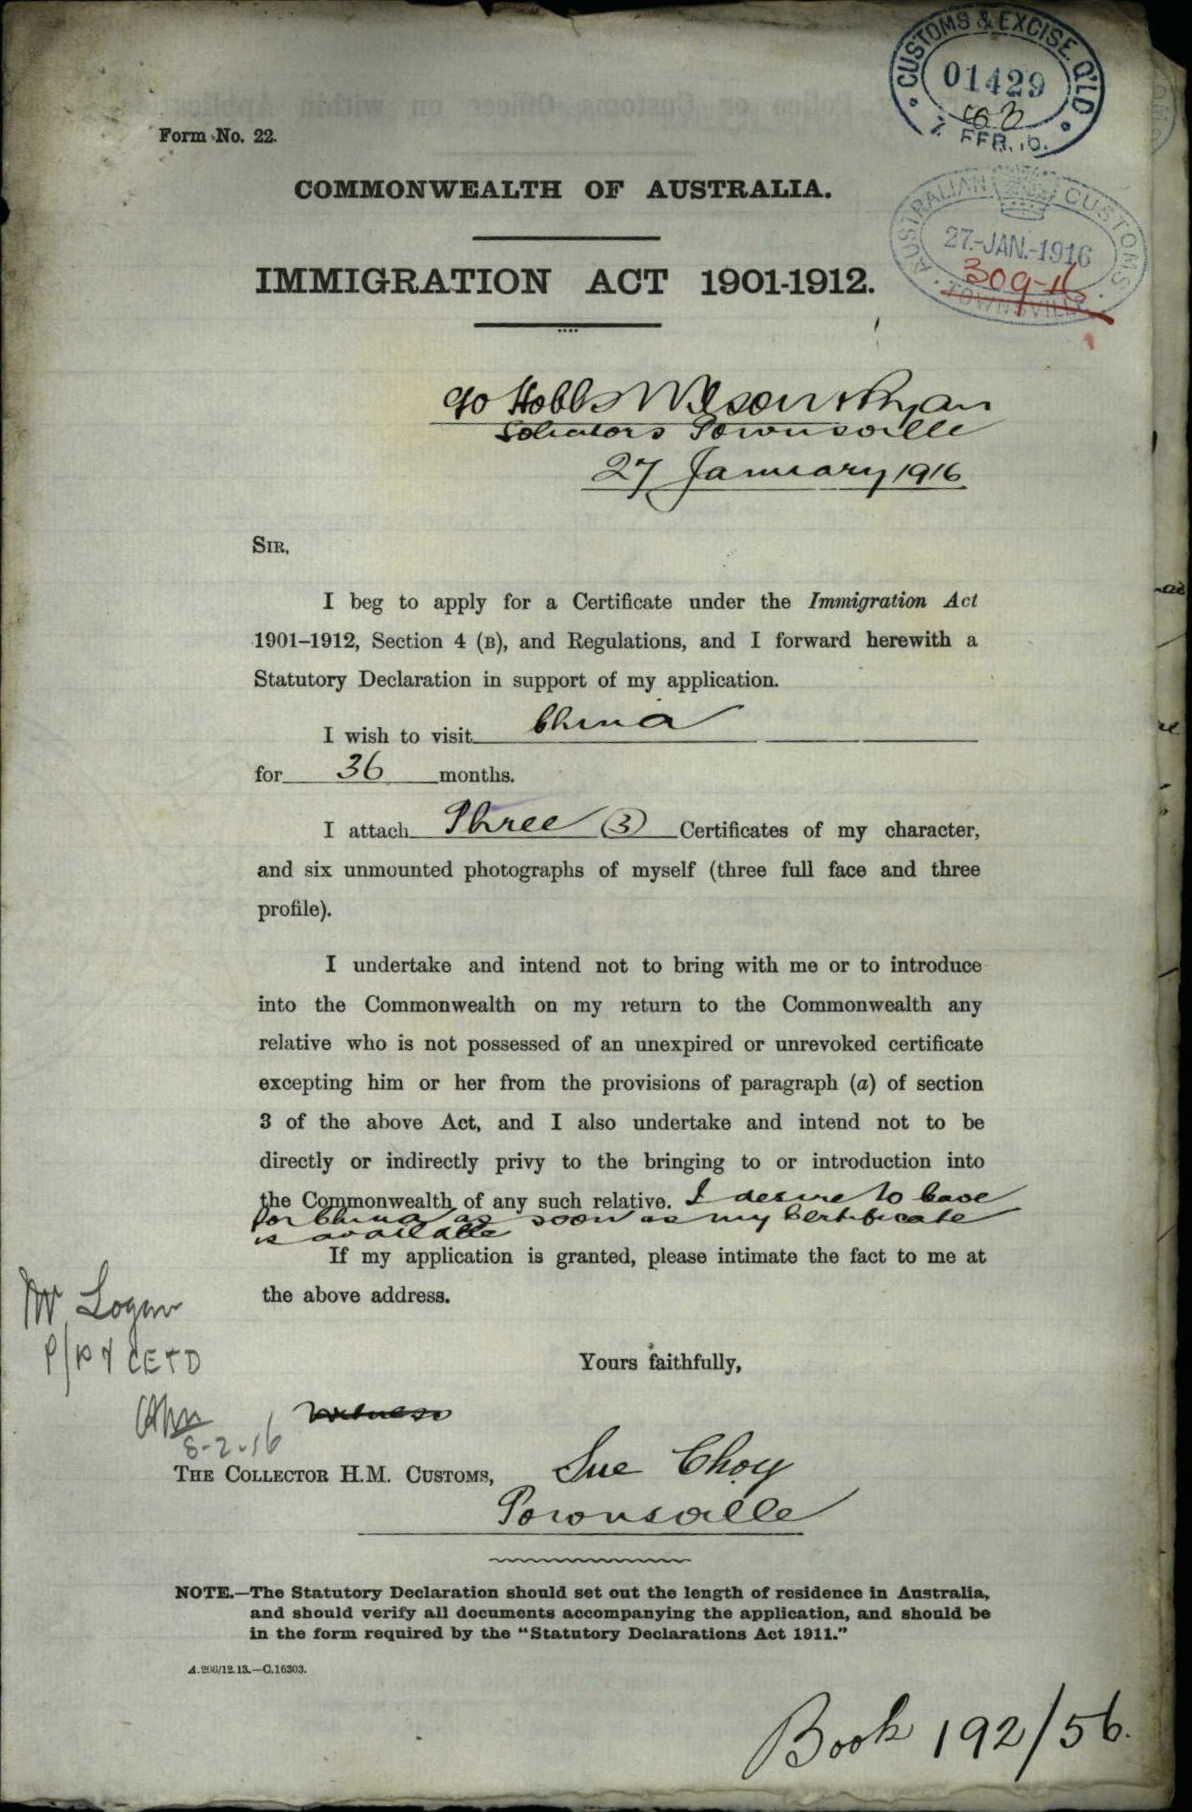 CUSTOMS & EXCISE. Q'LD
01429
7 FEB.
Form No. 22.
COMMONWEALTH OF AUSTRALIA.
AUSTRALIAN CUSTOMS
27.-JAN.-1916
309-16
TOWNSVILLE
IMMIGRATION ACT 1901-1912.
c/o Hobbs Wilson & Ryan
Solicitors Townsville
27 January 1916
SIR,
I beg to apply for a Certificate under the Immigration Act
1901–1912, Section 4 (B), and Regulations, and I forward herewith a
Statutory Declaration in support of my application.
I wish to visit China
for 36 months.
I attach Three (3) Certificates of my character,
and six unmounted photographs of myself (three full face and three
profile).
I undertake and intend not to bring with me or to introduce
into the Commonwealth on my return to the Commonwealth any
relative who is not possessed of an unexpired or unrevoked certificate
excepting him or her from the provisions of paragraph (a) of section
3 of the above Act, and I also undertake and intend not to be
directly or indirectly privy to the bringing to or introduction into
the Commonwealth of any such relative. I desire to leave
for China as soon as my Certificate
is available
If my application is granted, please intimate the fact to me at
the above address.
Mr Logan
CETD
Yours faithfully,
Witness
8-2-16
THE COLLECTOR H.M. CUSTOMS, Sue Choy
Townsville
NOTE.—The Statutory Declaration should set out the length of residence in Australia,
and should verify all documents accompanying the application, and should be
in the form required by the “Statutory Declarations Act 1911.”
A.206/12.13.—C.16303.
Book 192/56.